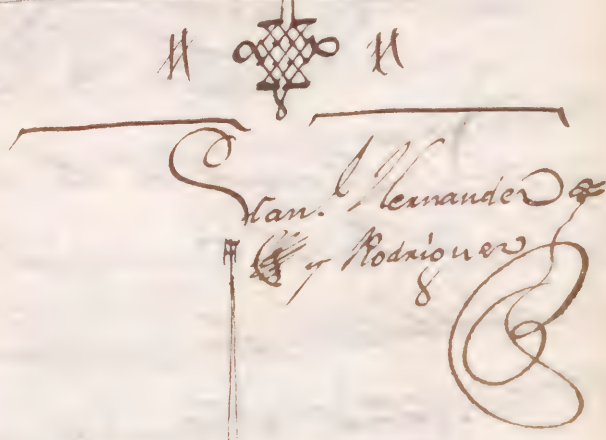 Man.l Hernandez
y Rodriguez